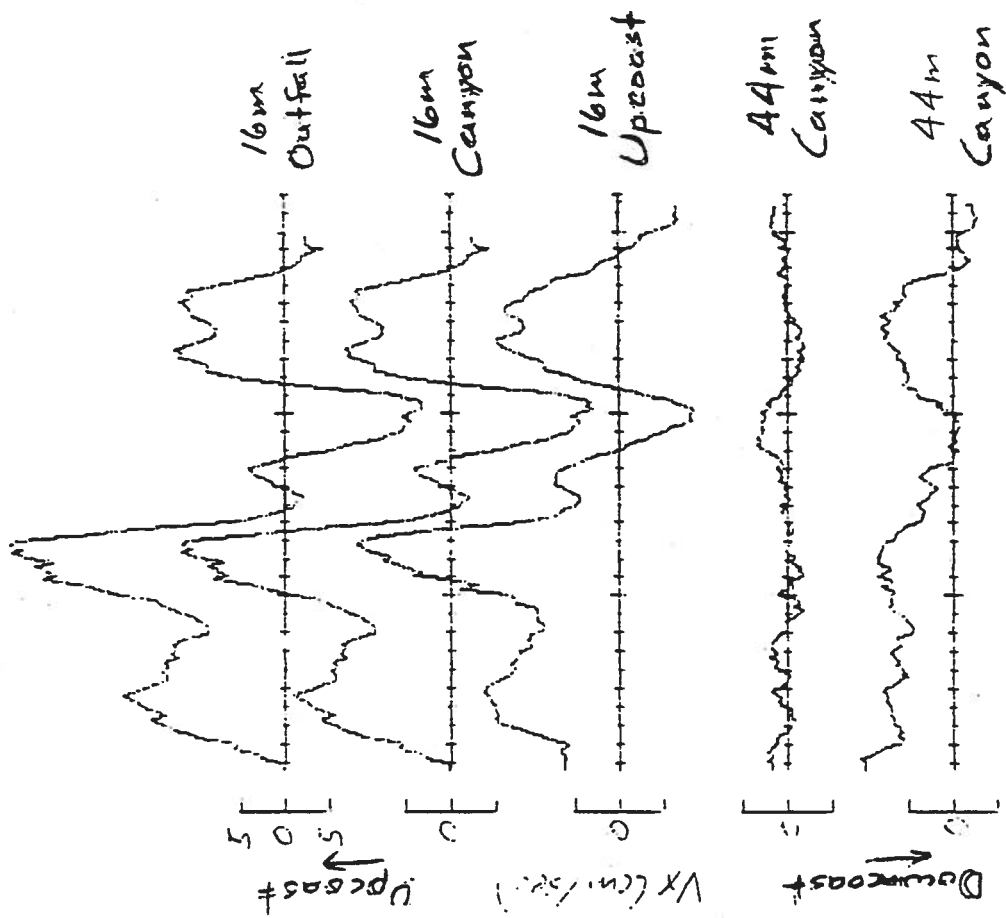 16m
Outfall
16m
Canyon
16m
Upcoast
44m
Canyon
44m
Canyon
5
0
5
0
0
0
0
Upcoast
Vx (cm/sec)
Downcoast